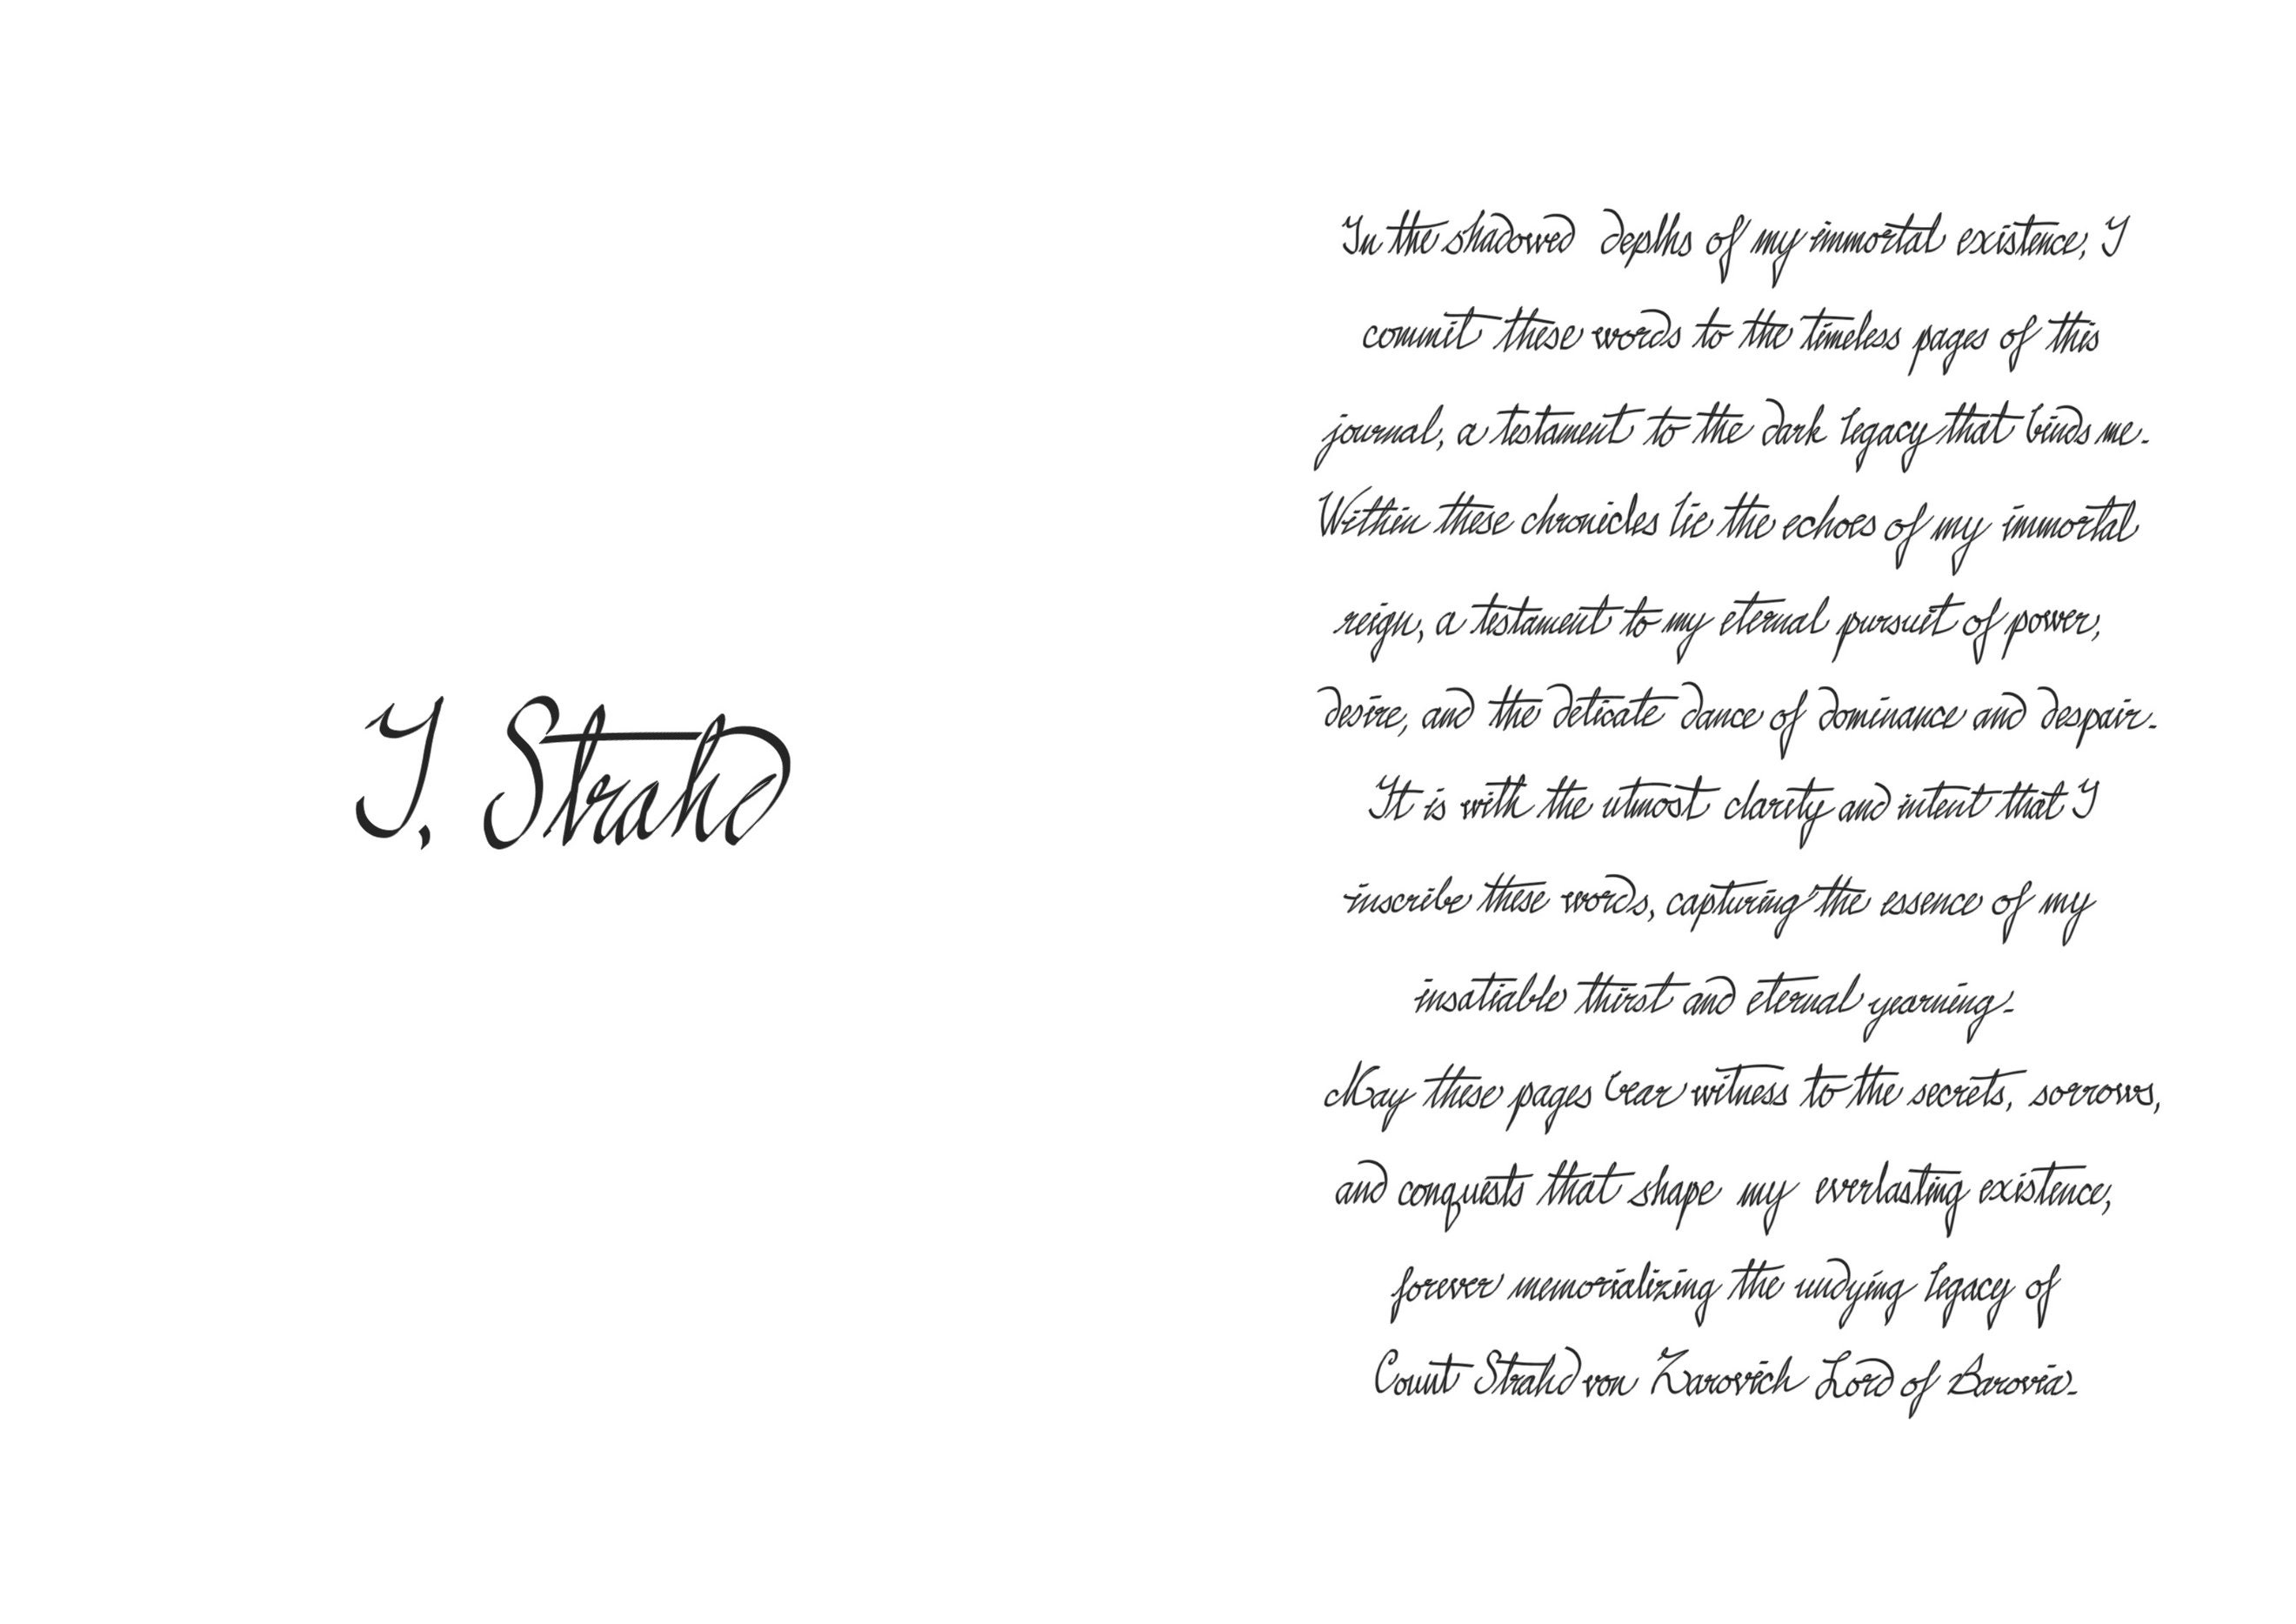 I, Strahd
In the shadowed depths of my immortal existence, I
commit these words to the timeless pages of this
journal, a testament to the dark legacy that binds me.
Within these chronicles lie the echoes of my immortal
reign, a testament to my eternal pursuit of power,
desire, and the delicate dance of dominance and despair.
It is with the utmost clarity and intent that I
inscribe these words, capturing the essence of my
insatiable thirst and eternal yearning.
May these pages bear witness to the secrets, sorrows,
and conquests that shape my everlasting existence,
forever memorializing the undying legacy of
Count Strahd von Zarovich Lord of Barovia.